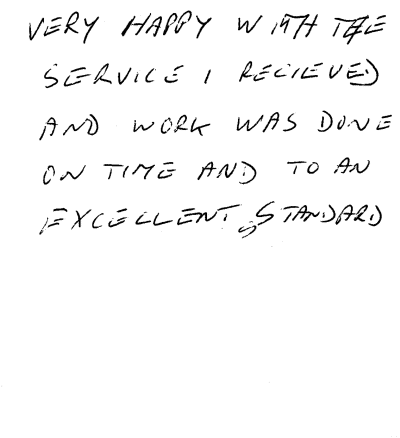 VERY HAPPY WITH THE
SERVICE I RECIEVED
AND WORK WAS DONE
ON TIME AND TO AN
EXCELLENT STANDARD